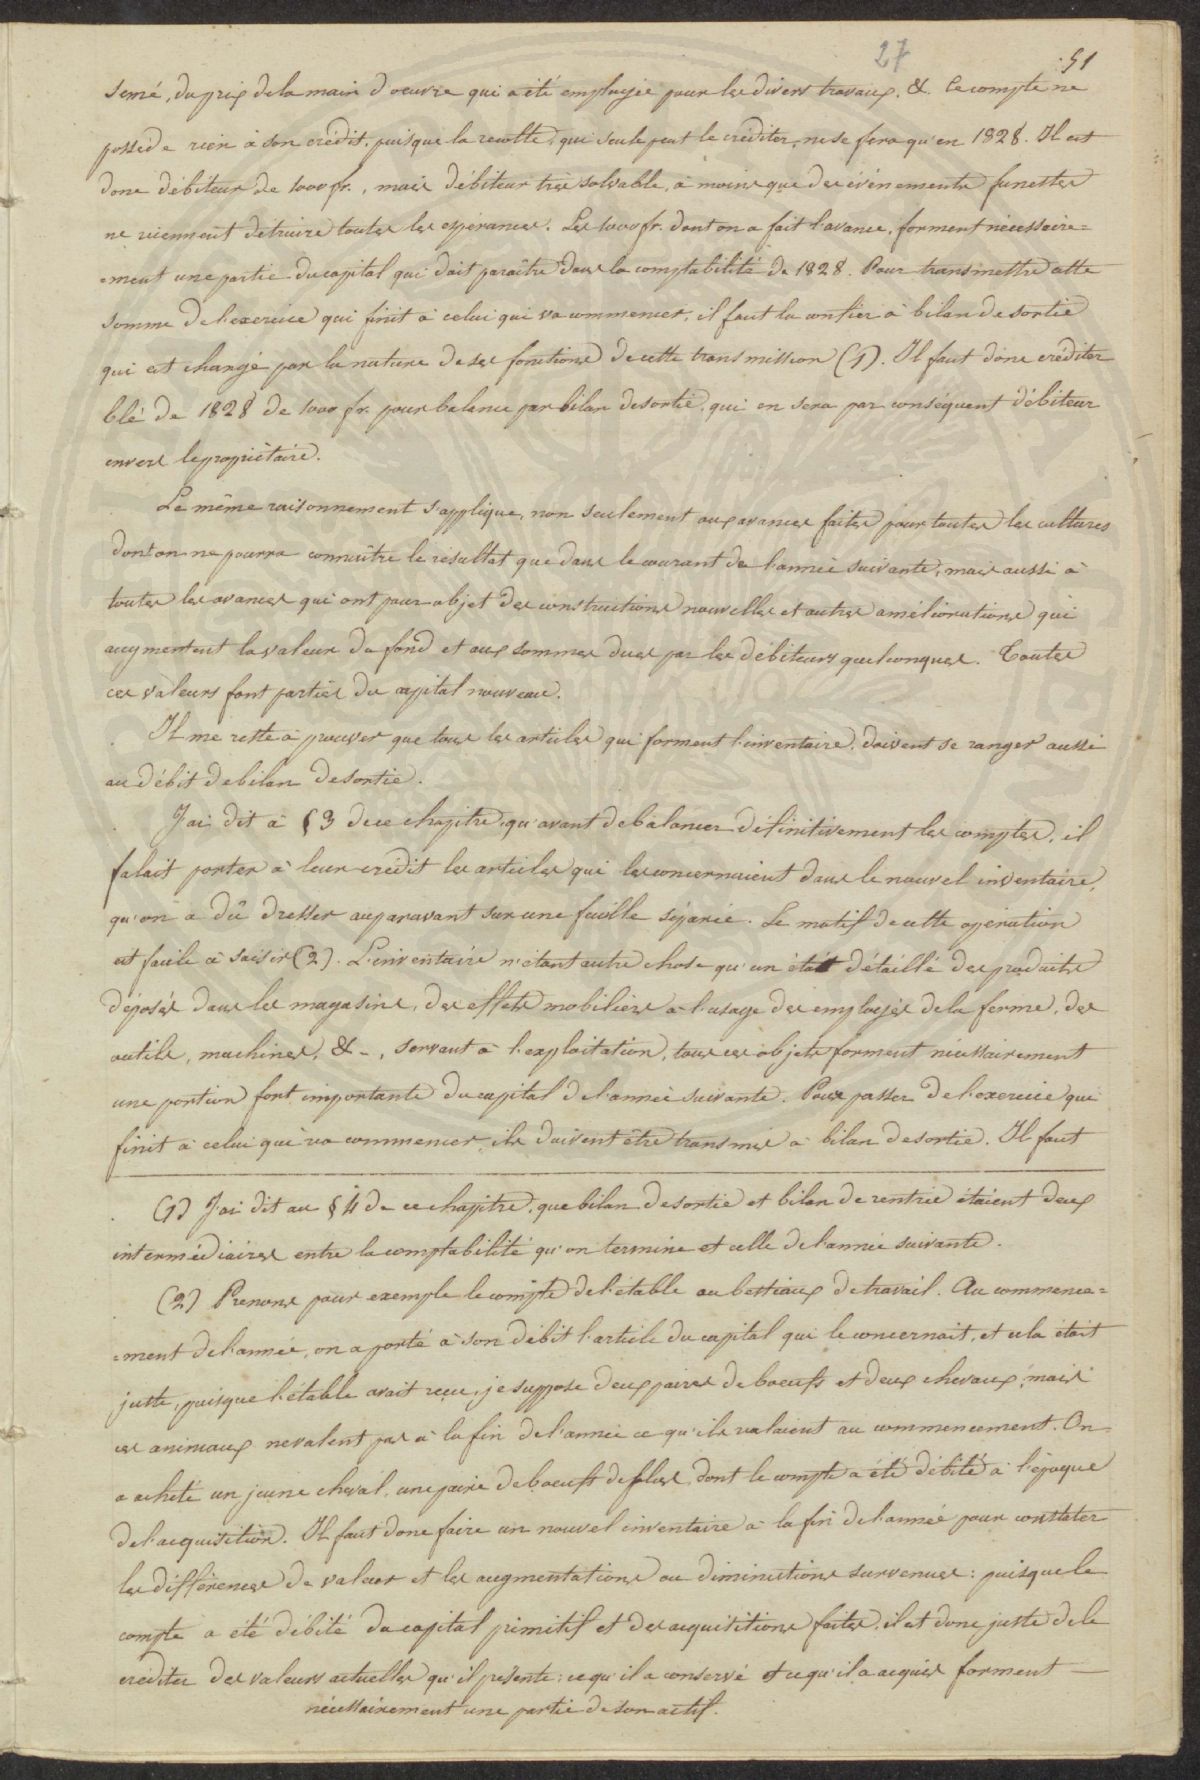 27
51
semé, du prix de la main d'oeuvre qui a été employée pour les divers travaux, &. Ce compte ne
possede rien à son crédit, puisque la recolte, qui seule peut le créditer, ne se fera qu'en 1828. Il est
donc débiteur de 1000 fr., mais débiteur très solvable, à moins que des événements funestes
ne viennent détruire toutes les espérances. Les 1000 fr. dont on a fait l'avance, forment nécessaire=
=ment une partie du capital qui doit paraître dans la comptabilité de 1828. Pour transmettre cette
somme de l'exercice qui finit à celui qui va commencer, il faut la confier à bilan de sortie
qui est chargé par la nature de ses fonctions de cette transmission (1). Il faut donc créditer
blé de 1828 de 1000 fr. pour balance par bilan de sortie, qui en sera par conséquent débiteur
envers le propriétaire.
Le même raisonnement s'applique, non seulement aux avances faites pour toutes les cultures
dont on ne pourra connaître le résultat que dans le courant de l'année suivante, mais aussi à
toutes les avances qui ont pour objet des constructions nouvelles et autres améliorations qui
augmentent la valeur du fond et aux sommes dues par les débiteurs quelconques. Toutes
ces valeurs font parties du capital nouveau.
Il me reste à prouver que tous les articles qui forment l'inventaire, doivent se ranger aussi
au débit de bilan de sortie.
J'ai dit à § 3 de ce chapitre, qu'avant de balancer définitivement les comptes, il
falait porter à leur crédit les articles qui les concernaient dans le nouvel inventaire,
qu'on a dû dresser auparavant sur une feuille séparée. Le motif de cette opération
est facile à saisir (2). L'inventaire n'étant autre chose qu'un état détaillé des produits
déposés dans les magasins, des effets mobiliers à l'usage des employés de la ferme, des
outils, machines, & -, servant à l'exploitation, tous ces objets forment nécessairement
une portion fort importante du capital de l'année suivante. Pour passer de l'exercice qui
finit à celui qui va commencer, ils doivent être transmis à bilan de sortie. Il faut
(1) J'ai dit au § 4 de ce chapitre, que bilan de sortie et bilan de rentrée étaient deux
intermédiaires entre la comptabilité qu'on termine et celle de l'année suivante.
(2) Prenons pour exemple le compte de l'étable ou bestiaux de travail. Au commence=
=ment de l'année, on a porté à son débit l'article du capital qui le concernait, et cela était
juste, puisque l'étable avait reçu, je suppose deux paires de boeufs et deux chevaux; mais
ces animaux ne valent pas à la fin de l'année ce qu'ils valaient au commencement. On
a acheté un jeune cheval, une paire de boeufs de plus, dont le compte a été débité à l'époque
de l'acquisition. Il faut donc faire un nouvel inventaire à la fin de l'année pour constater
les différences de valeur et les augmentations ou diminutions survenues: puisque le
compte a été débité du capital primitif et des acquisitions faites, il est donc juste de le
créditer des valeurs actuelles qu'il présente: ce qu'il a conservé et ce qu'il a acquis forment
nécessairement une partie de son actif.